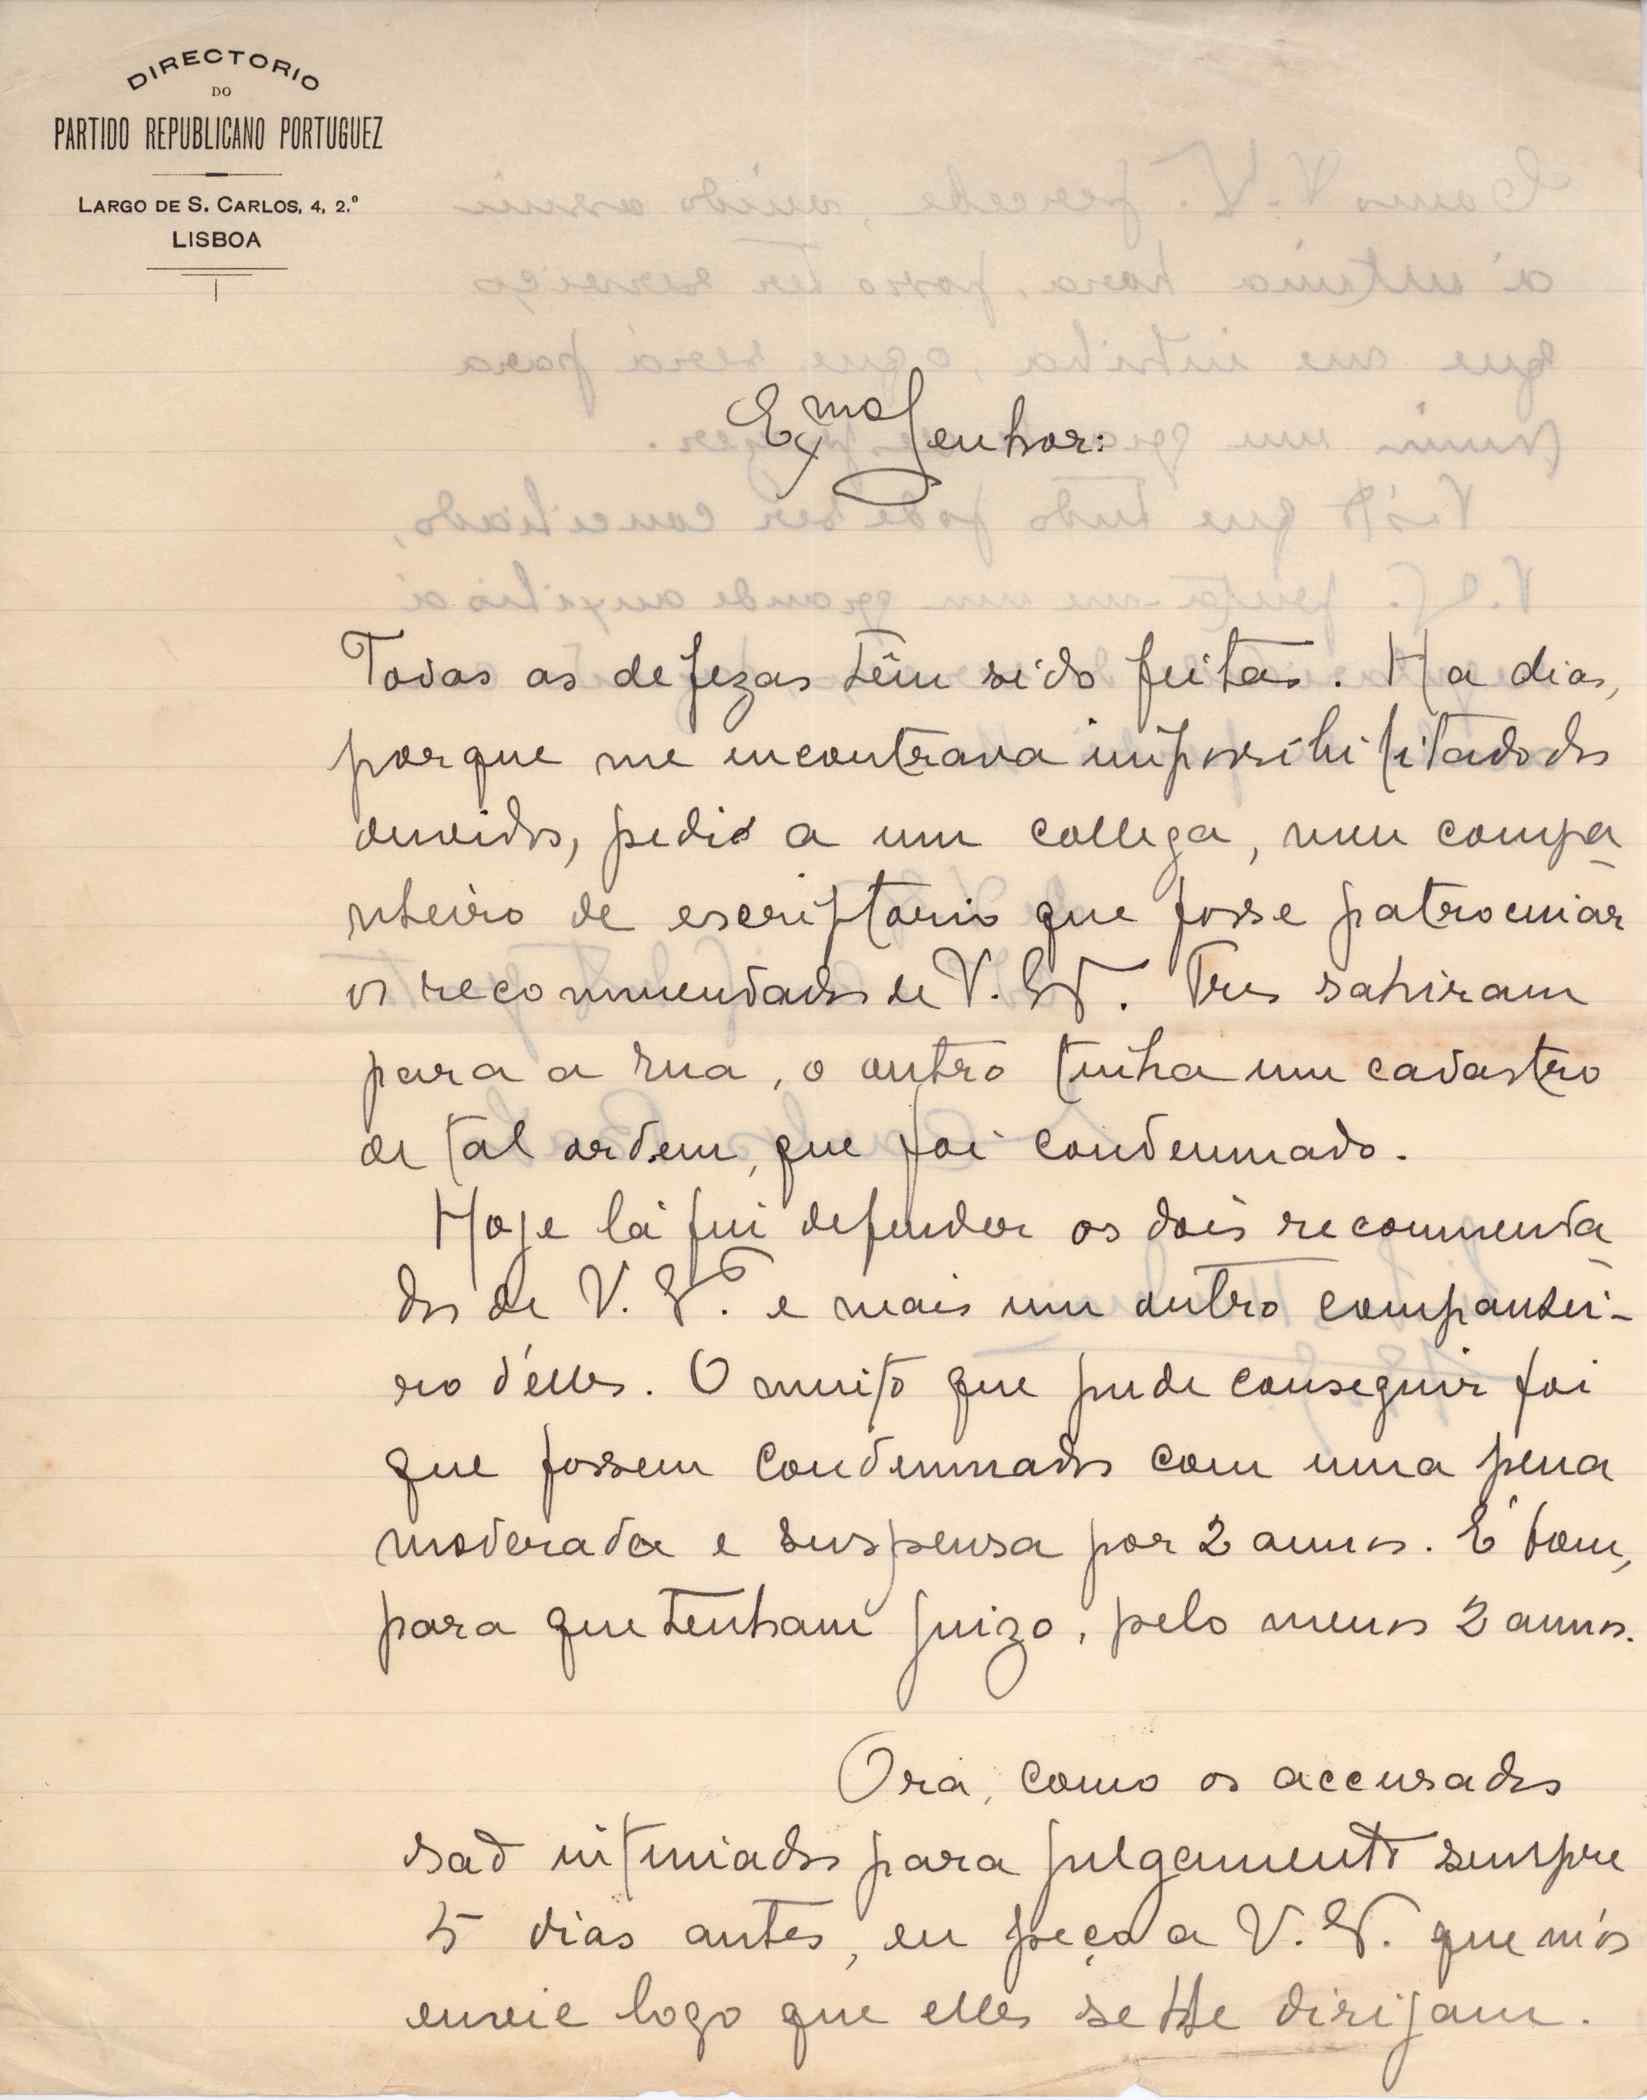 DIRECTORIO
DO
PARTIDO REPUBLICANO PORTUGUEZ
LARGO DE S. CARLOS, 4, 2.º
LISBOA
Exmo Senhor:
Todas as defezas têm sido feitas. Ha dias,
porque me encontrava impossibilitado dos
ouvidos, pedi a um collega, meu compa
nheiro de escriptorio que fosse patrocinar
os recommendados de V. Ex. Tres sahiram
para a rua, o outro tinha um cadastro
de tal ordem, que foi condemnado.
Hoje lá fui defender os dois recommenda
dos de V. Ex. e mais um outro companhei-
ro d'elles. O muito que pude conseguir foi
que fossem condemnados com uma pena
moderada e suspensa por 2 annos. É bom,
para que tenham juizo, pelo menos 2 annos.
Ora, como os accusados
são intimados para julgamento sempre
5 dias antes, eu peço a V. Ex. que m'os
envie logo que elles se lhe dirijam.